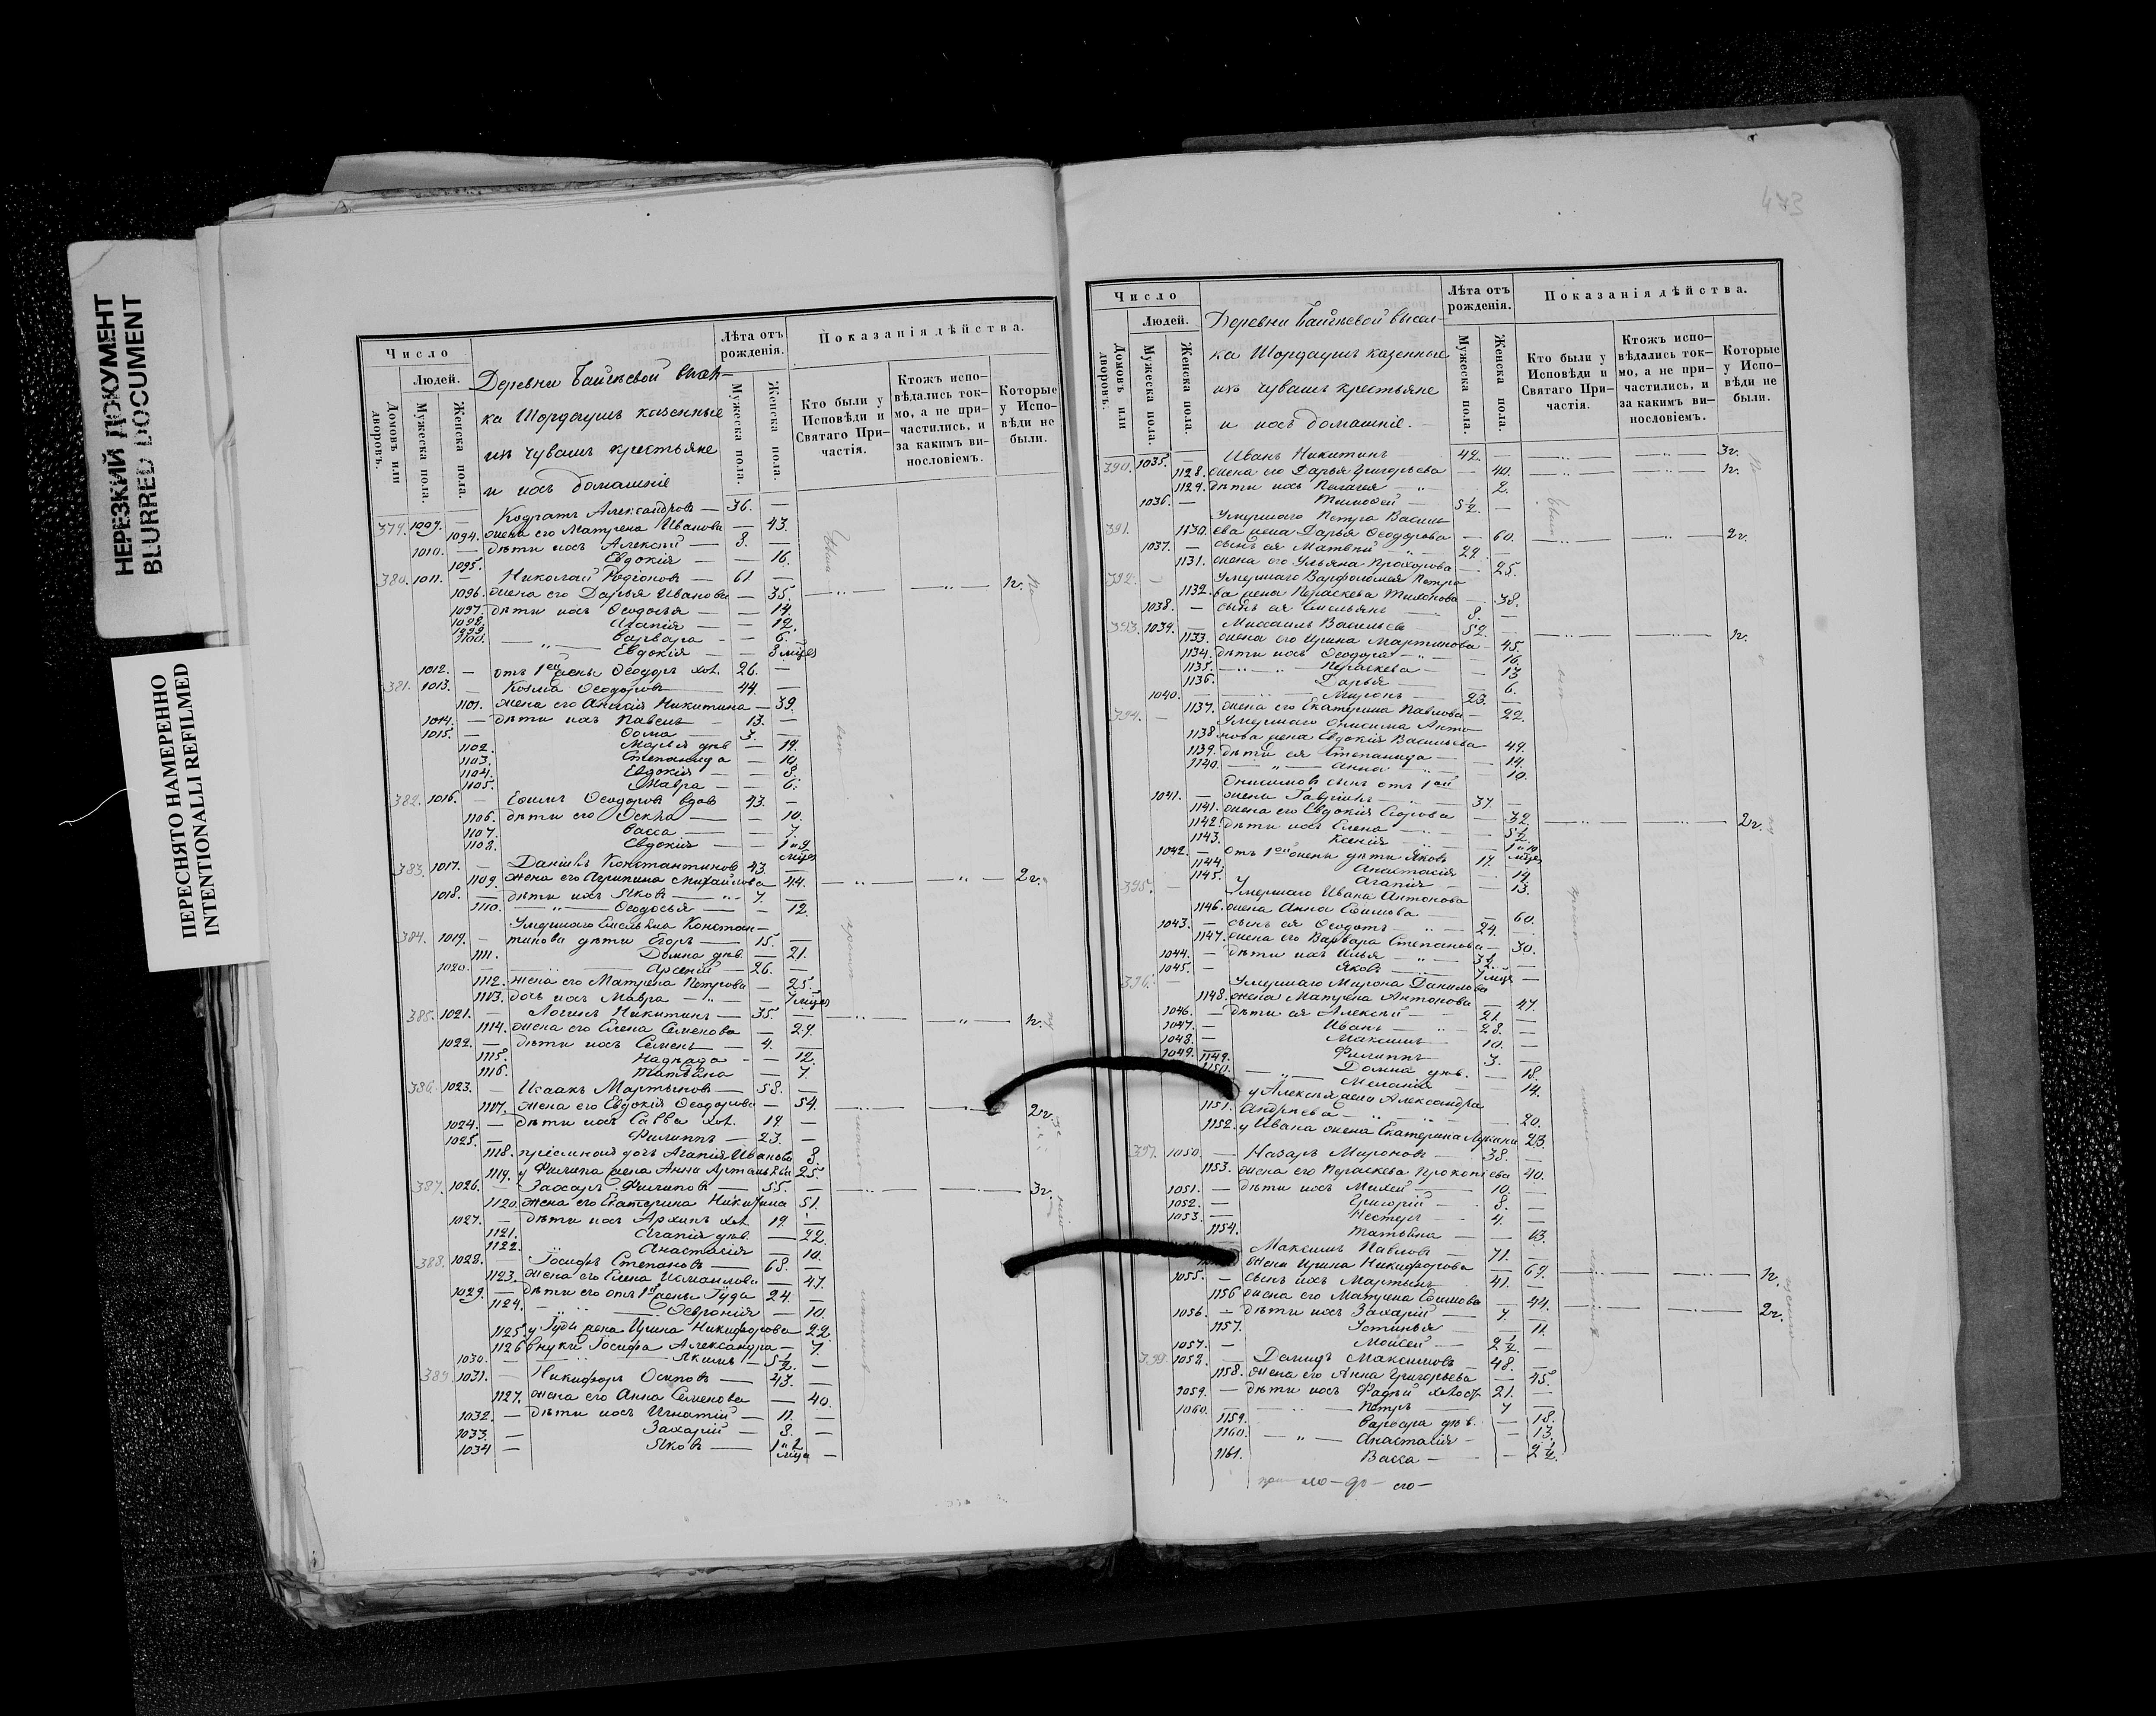 НЕРЕЗКИЙ ДОКУМЕНТ
BLURRED DOCUMENT
ПЕРЕСНЯТО НАМЕРЕННО
INTENTIONALLI REFILMED
Число
Людей.
Домовъ или дворовъ.
Мужеска пола.
Женска пола.
Деревни Байгѣевой
ка Шордаушъ казенные
изъ чувашъ крестьяне
и ихъ домашніе
Лѣта отъ рожденія.
Мужеска пола.
Женска пола.
Показанія дѣйства.
Кто были у Исповѣди и Святаго Причастія.
Ктожъ исповѣдались токмо, а не причастились, и за какимъ винословіемъ.
Которые у Исповѣди не были.
379. 1009. — Кодратъ Александровъ — 36. —
1094. жена его Матрена Иванова — 43.
1010. — дѣти ихъ Алексѣй — 8. —
1095. Евдокія — 16.
380. 1011. — Николай Родіоновъ — 61 —
1096. жена его Дарья Иванова — 35.
1097. дѣти ихъ Ѳеодосья — 14.
1098. Агапія — 12.
Варвара — 6.
1100. Евдокія — 8 мцѣ
1012. — отъ 1ой жены Ѳеодоръ хол. 26. —
381. 1013. — Козма Ѳеодоровъ — 44. —
1101. жена его Анисія Никитина — 39.
1014. — дѣти ихъ Павелъ — 13. —
1015. — Ѳома — 3. —
1102. Марья дѣв — 19.
1103. Степанида — 10.
1104. Евдокія — 8.
1105. Мавра — 6.
382. 1016. — Ефимъ Ѳеодоровъ вдов 43. —
1106. дѣти его Ѳекла — 10.
1107. Васса — 7.
1108. Евдокія — 1 и 9 мцѣ
383. 1017. — Даніилъ Константинов 43. —
1109. жена его Агрипина Михайлова 44. 2 г.
1018. — дѣти ихъ Яковъ — 7. —
1110. Ѳеодосья — 12.
Умершаго Емельяна Констан-
384. 1019. — тинова дѣти Егоръ — 15. —
1111. Домна дѣв. — 21.
1020. — Арсеній — 26. —
1112. жена его Матрена Петрова — 25.
1113. дочь ихъ Мавра — 7 мцѣ
385. 1021. — Логинъ Никитинъ — 35. —
1114. жена его Елена Семенова — 29.
1022. — дѣти ихъ Семенъ — 4. —
1115. Надежда — 12.
1116. Татьяна — 7.
386. 1023. — Исаакъ Мартыновъ — 58. —
1117. жена его Евдокія Ѳеодорова — 54. 2 г.
1024. — дѣти ихъ Савва хол. 19. —
1025. — Филиппъ — 23. —
1118. пріемная дочь Агапія Иванова 8.
1119. у Филипа жена Анна 25.
387. 1026. — Захаръ Филиповъ — 55. — 3 г.
1120. жена его Екатерина Никитина 51.
1027. — дѣти ихъ Архипъ хол. 19. —
1121. Агапія дѣв. — 22.
1122. Анастасія — 10.
388. 1028. — Іосифъ Степановъ — 68. —
1123. жена его Елена Исмаилова — 47.
1029. — дѣти его отъ 1ой жены Іуда 24. —
1124. Ѳевронія — 10.
1125. у Іуды жена Ирина Никифорова 22.
1126 внуки Іосифа Александра — 7.
1030. — Якимъ — 5 ½ —
389. 1031. — Никифоръ Осиповъ — 43. —
1127. жена его Анна Семенова — 40.
1032. — дѣти ихъ Игнатій — 11. —
1033. — Захарій — 8. —
1034 — Яковъ — 1 и 2 мца —
473
Число
Людей.
Домовъ или дворовъ.
Мужеска пола.
Женска пола.
Деревни Байгѣевой высел-
ка Шордаушъ казенные
изъ чувашъ крестьяне
и ихъ домашніе.
Лѣта отъ рожденія.
Мужеска пола.
Женска пола.
Показанія дѣйства.
Кто были у Исповѣди и Святаго Причастія.
Ктожъ исповѣдались токмо, а не причастились, и за какимъ винословіемъ.
Которые у Исповѣди не были.
390. 1035. — Иванъ Никитинъ 42. — 3 г.
1128. жена его Дарья Григорьева — 40.
1129. дѣти ихъ Пелагея — 2.
1036. — Тимофей — 5 ½. —
Умершаго Петра Василь-
391. 1130. ева жена Дарья Ѳеодорова — 60. 2 г.
1037. — сынъ ея Матвѣй — 29. —
1131. жена его Ульяна Прохорова — 25.
392. — Умершаго Варфоломея Петро
1132. ва жена Параскева Тихонова — 38.
1038. — сынъ ея Емельянъ — 8. —
393. 1039. — Михаилъ Васильевъ 52. —
1133. жена его Ирина Мартинова — 45.
1134. дѣти ихъ Ѳеодора — 16.
1135. Параскева — 13
1136. Дарья — 6.
1040. — Миронъ — 23. —
1137. жена его Екатерина Павлова — 22.
394. — Умершаго Онисима Анто-
1138 нова жена Евдокія Васильева 49.
1139. дѣти ея Степанида — 14.
1140. Анна — 10.
Онисимовъ сынъ отъ 1ой
1041. — жены Гавріилъ — 37. —
1141. жена его Евдокія Егорова — 32. 2 г.
1142. дѣти ихъ Елена — 5 ½
1143. Ксенія — 1 и 10 мцѣ
1042. — отъ 1ой жены дѣти Яковъ 17. —
1144. Анастасія — 19.
1145. Агапія — 13.
395. — Умершаго Ивана Антонова
1146. жена Анна Ефимова — 60.
1043. — сынъ ея Ѳеодотъ — 29. —
1147. жена его Варвара Степанова — 30.
1044. — дѣти ихъ Илья — 3 ½. —
1045. — Яковъ — 7 мця —
396. — Умершаго Мирона Данилова
1148. жена Матрена Антонова — 47.
1046. — дѣти ея Алексѣй — 21. —
1047. — Иванъ — 28. —
1048. — Максимъ — 10. —
1049. — Филиппъ — 3. —
1149. Домна дѣв. — 18.
1150. Меланія — 14.
у Алексѣя жена Александра
1151. Андреева — 20.
1152. у Ивана жена Екатерина 23.
397. 1050. — Назаръ Мироновъ — 38. —
1153. жена его Параскева Прокопіева 40.
1051. — дѣти ихъ Михей — 10. —
1052. — Григорій — 8. —
1053 — Нестеръ — 4. —
1154. Татьяна — 13.
Максимъ Павловъ — 71. —
жена Ирина Никифорова — 69.
1055. — сынъ ихъ Мартынъ — 41. —
1156 жена его Матрена Ефимова — 44. 2 г.
1056. — дѣти ихъ Захарій — 7. —
1157. Устинья — 11.
1057. — Моисей — 2 ½. —
399. 1058. — Давидъ Максимовъ — 48. —
1158. жена его Анна Григорьева — 45
1059. — дѣти ихъ Фадѣй холост. 21. —
1060. — Петръ — 7 —
1159. Варвара дѣв. — 18.
1160. Анастасія — 13.
1161. Васса — 2 ½.